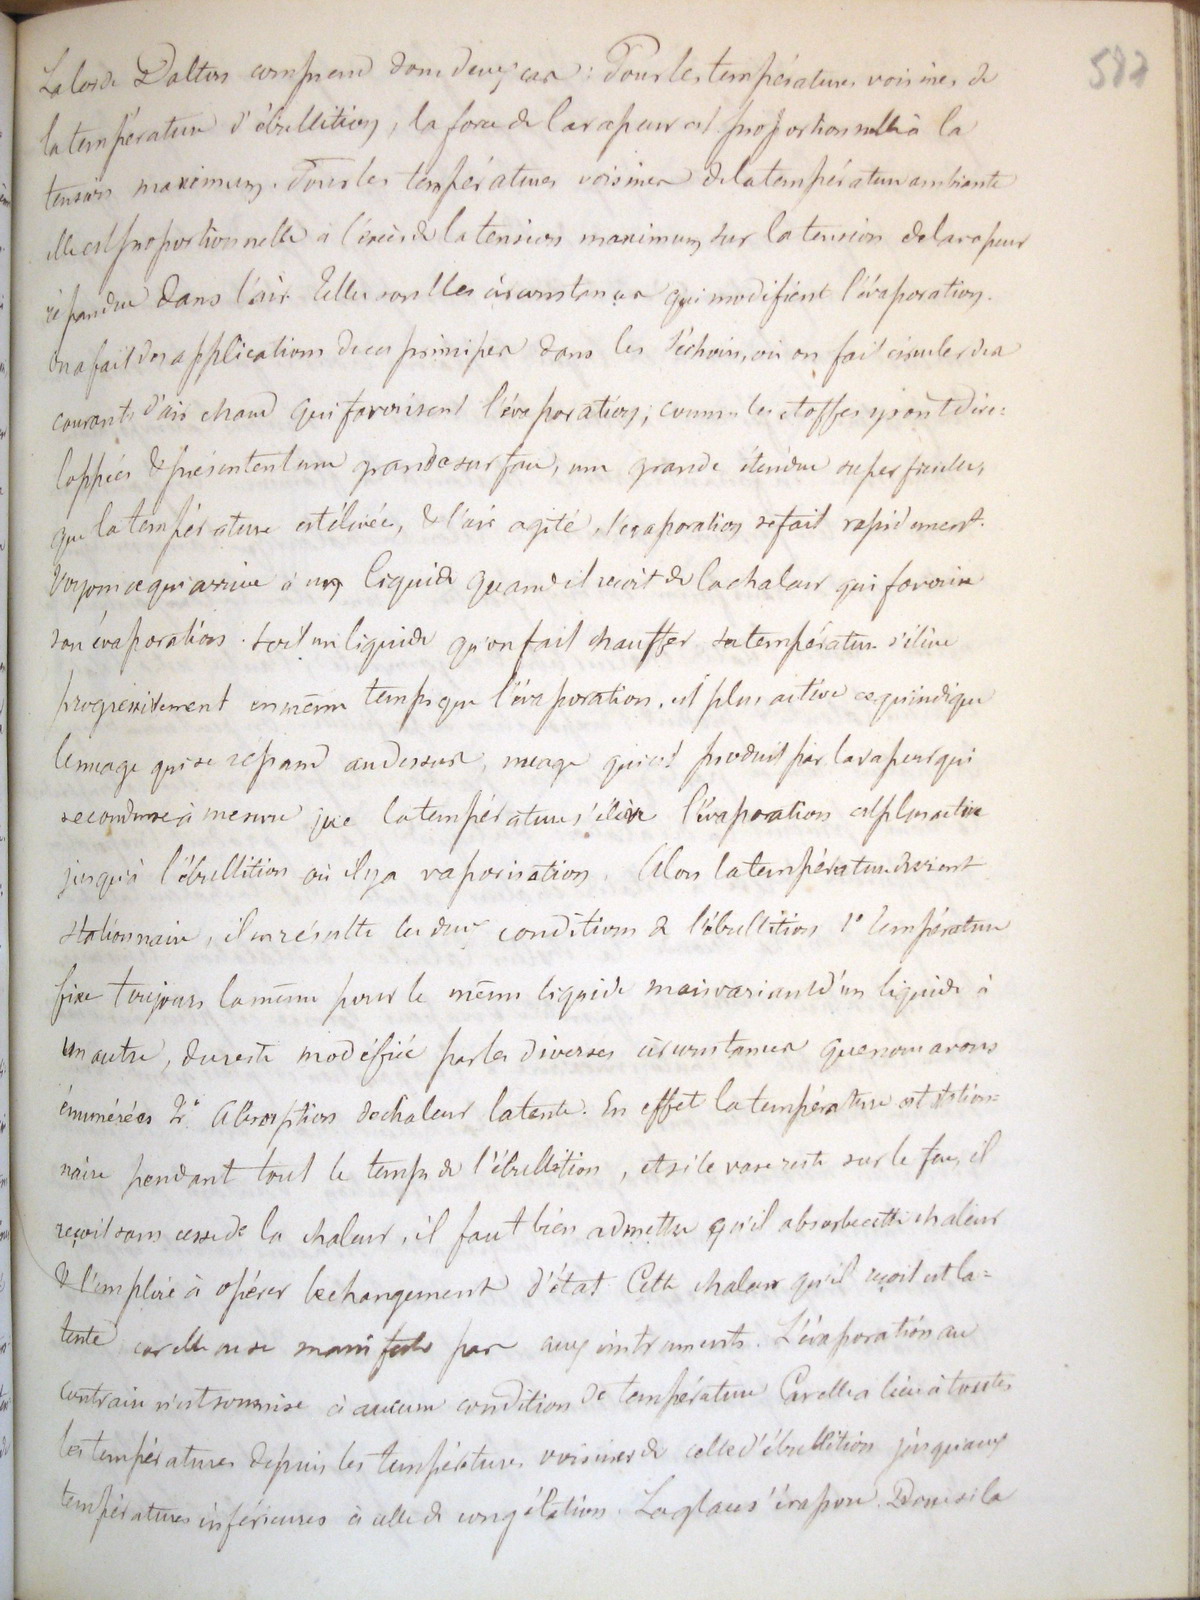 587
La loi de Dalton comprend donc deux cas : Pour les températures voisines de
la température d'ébullition, la force de la vapeur est proportionnelle à la
tension maximum. Pour les températures voisines de la température ambiante
elle est proportionnelle à l'excès de la tension maximum sur la tension de la vapeur
répandue dans l'air. Telles sont les circonstances qui modifient l'évaporation.
On a fait des applications de ces principes dans les séchoirs, où on fait circuler des
courants d'air chaud qui favorisent l'évaporation; comme les étoffes y sont déve=
loppées & présentent une grande surface, une grande étendue superficielle,
que la température est élevée, & l'air agité l'évaporation se fait rapidement.
Voyons ce qui arrive à un liquide quand il reçoit de la chaleur qui favorise
son évaporation. Soit un liquide qu'on fait chauffer sa température s'élève
progressivement en même temps que l'évaporation est plus active ce qu'indique
le nuage qui se répand au dessus, nuage qui est produit par la vapeur qui
se condense à mesure que la température s'élève l'évaporation est plus active
jusqu'à l'ébullition où il y a vaporisation. Alors la température devient
stationnaire, il en résulte les deux conditions de l'ébullition 1° température
fixe toujours la même pour le même liquide mais variant d'un liquide à
un autre, du reste modifiée par les diverses circonstances que nous avons
énumérées 2° Absorption de chaleur latente. En effet la température est station=
naire pendant tout le temps de l'ébullition, et si le vase reste sur le feu, il
reçoit sans cesse de la chaleur, il faut bien admettre qu'il absorbe cette chaleur
& l'emploie à opérer le changement d'état. Cette chaleur qu'il reçoit est la=
tente car elle ne se manifeste pas aux instruments. L'évaporation au
contraire n'est soumise à aucune condition de température Car elle a lieu à toutes
les températures depuis les températures voisines de celle d'ébullition jusqu'aux
températures inférieures à celle de congélation. La glace s'évapore. Donc si la